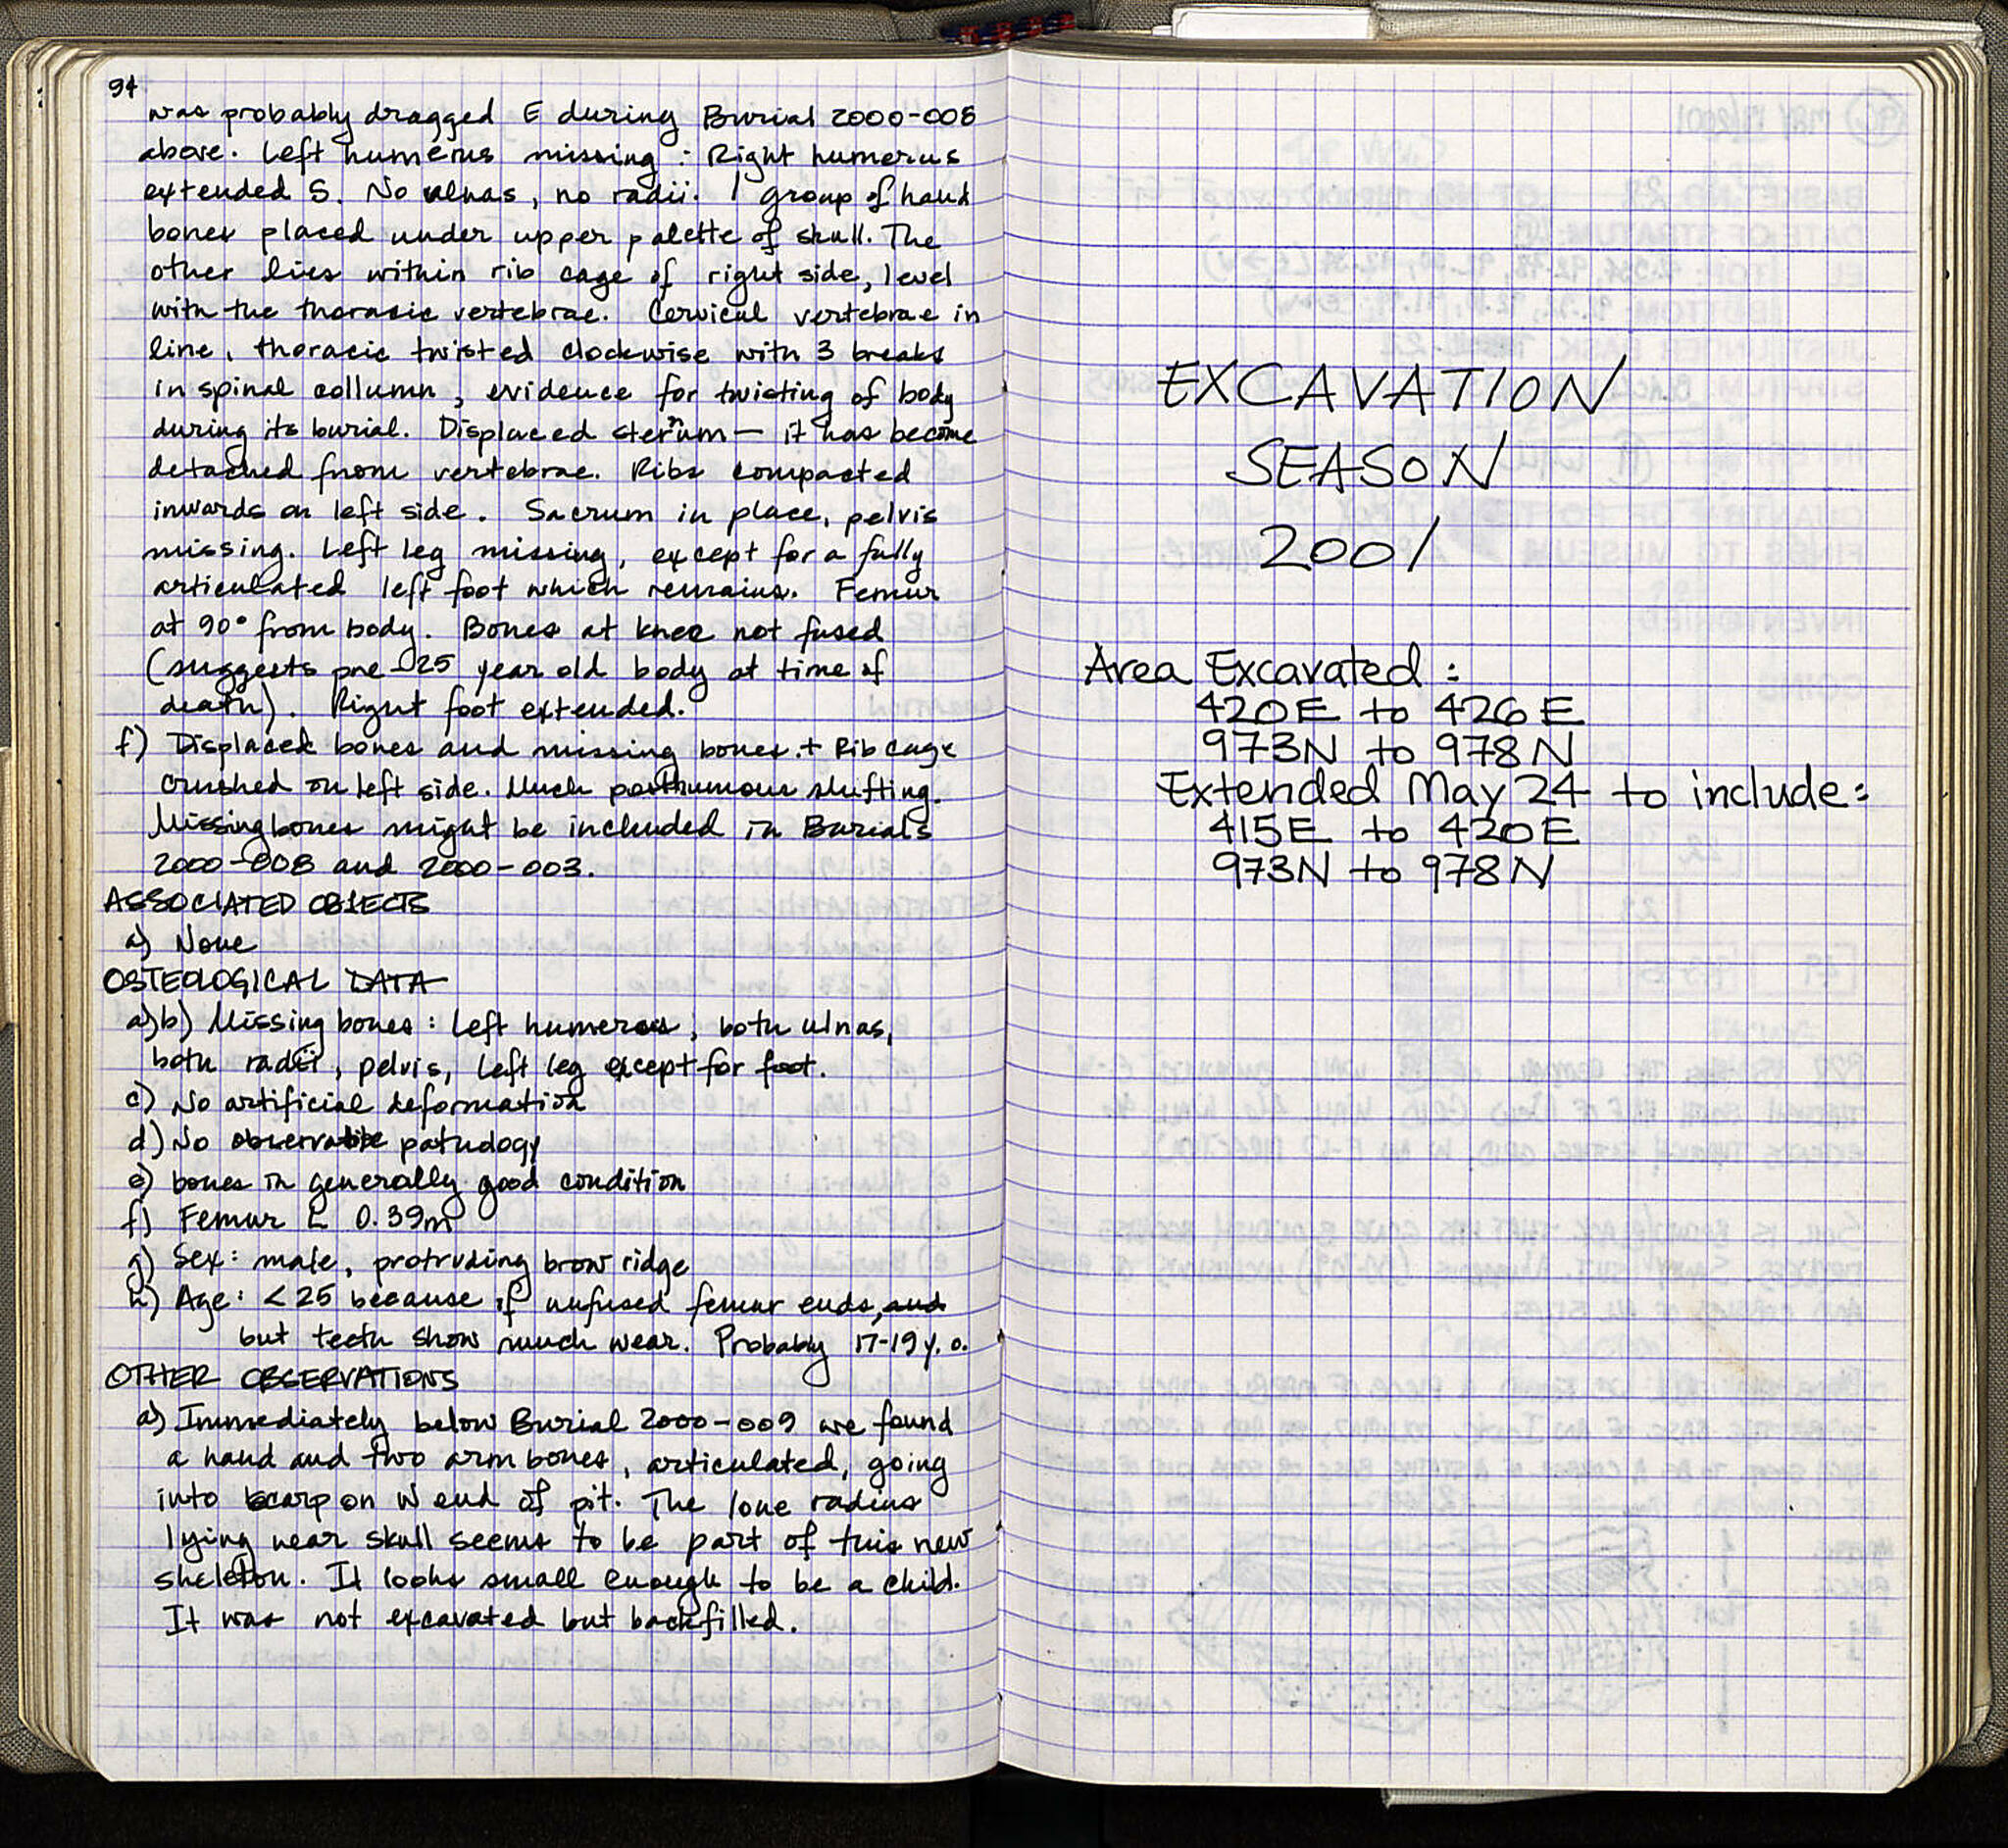 94
was probably dragged E during Burial 2000-008
above. Left humerus missing : Right humerus
extended S. No ulnas, no radii. 1 group of hand
bones placed under upper palette of skull. The
other lies within rib cage of right side, level
with the thorasic vertebrae. Cervical vertebrae in
line, thoracic twisted clockwise with 3 breaks
in spinal collumn, evidence for twisting of body
during its burial. Displaced sternum — it has become
detached from vertebrae. Ribs compacted
inwards on left side. Sacrum in place, pelvis
missing. Left leg missing, except for a fully
articulated left foot which remains. Femur
at 90° from body. Bones at knee not fused
(suggests pre-25 year old body at time of
death). Right foot extended.
f) Displaced bones and missing bones. + Rib cage
crushed on left side. Much posthumous shifting.
Missing bones might be included in Burials
2000-008 and 2000-003.
ASSOCIATED OBJECTS
a) None
OSTEOLOGICAL DATA
a)b) Missing bones: Left humerus, both ulnas,
both radii, pelvis, left leg except for foot.
c) No artificial deformation
d) No observable pathology
e) bones in generally good condition
f) Femur L 0.39m
g) Sex: male, protruding brow ridge
h) Age: <25 because of unfused femur ends, and
but teeth show much wear. Probably 17-19 y.o.
OTHER OBSERVATIONS
a) Immediately below Burial 2000-009 we found
a hand and two arm bones, articulated, going
into scarp on W end of pit. The lone radius
lying near skull seems to be part of this new
skeleton. It looks small enough to be a child.
It was not excavated but backfilled.
EXCAVATION
SEASON
2001
Area Excavated :
420E to 426E
973N to 978N
Extended May 24 to include:
415E to 420E
973N to 978N